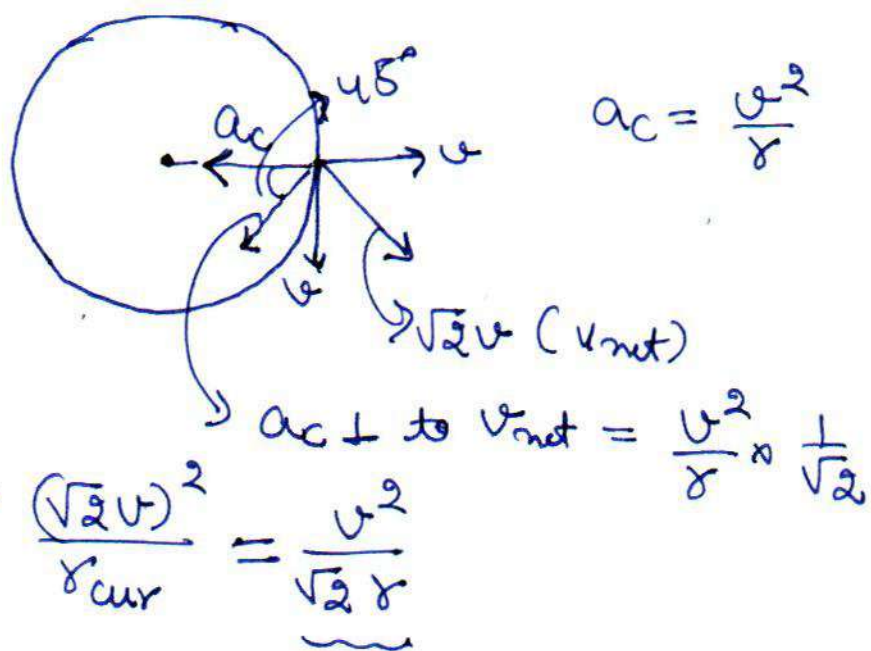 45°
a_c
v
a_c = v²/r
v
√2v (v_net)
a_c ⊥ to v_net = v²/r × 1/√2
(√2v)²/r_cur = v²/(√2 r)